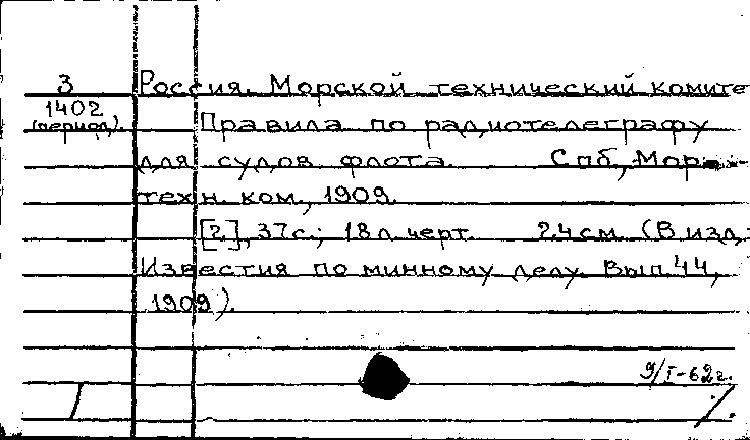 З Россия. Морской технический комите
1402
(период). Правила по радиотелеграфу
для судов флота. Спб., Мор.
техн. ком., 1909.
[2], 37с.; 18л. черт. 24см. (В изд.:
Известия по минному делу. Вып. 44,
1909).
9/I-62г.